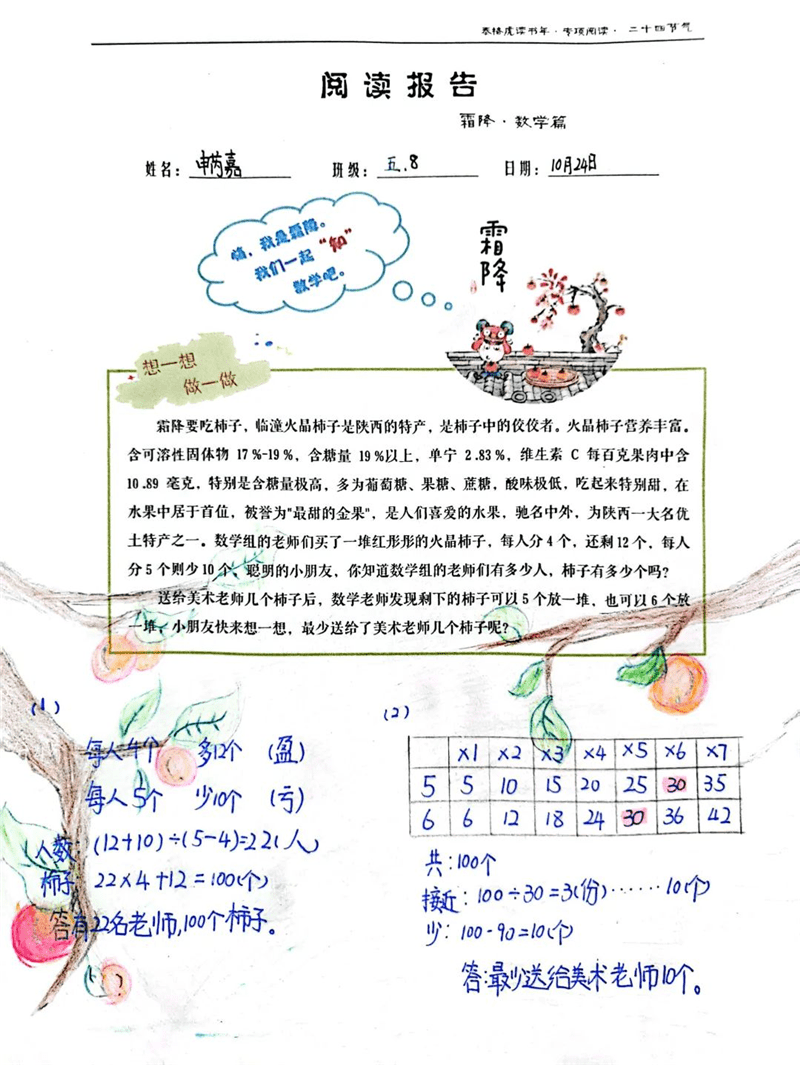 泰格虎读书年·专项阅读·二十四节气
阅读报告
霜降·数学篇
姓名：申芮嘉 班级：五.8 日期：10月24日
嗨，我是霜降。
我们一起“知”
数学吧。
霜降
想一想
做一做
霜降要吃柿子，临潼火晶柿子是陕西的特产，是柿子中的佼佼者。火晶柿子营养丰富。
含可溶性固体物 17%-19%，含糖量 19%以上，单宁 2.83%，维生素 C 每百克果肉中含
10.89 毫克，特别是含糖量极高，多为葡萄糖、果糖、蔗糖，酸味极低，吃起来特别甜，在
水果中居于首位，被誉为"最甜的金果"，是人们喜爱的水果，驰名中外，为陕西一大名优
土特产之一。数学组的老师们买了一堆红彤彤的火晶柿子，每人分4个，还剩12个，每人
分5个则少10个，聪明的小朋友，你知道数学组的老师们有多少人，柿子有多少个吗？
送给美术老师几个柿子后，数学老师发现剩下的柿子可以5个放一堆，也可以6个放
一堆，小朋友快来想一想，最少送给了美术老师几个柿子呢？
(1)
每人4个 多12个 (盈)
每人5个 少10个 (亏)
人数：(12+10)÷(5-4)=22(人)
柿子 22×4+12=100(个)
答有22名老师,100个柿子。
(2)
×1 ×2 ×3 ×4 ×5 ×6 ×7
5 5 10 15 20 25 30 35
6 6 12 18 24 30 36 42
共:100个
接近:100÷30=3(份)……10(个)
少:100-90=10(个)
答:最少送给美术老师10个。